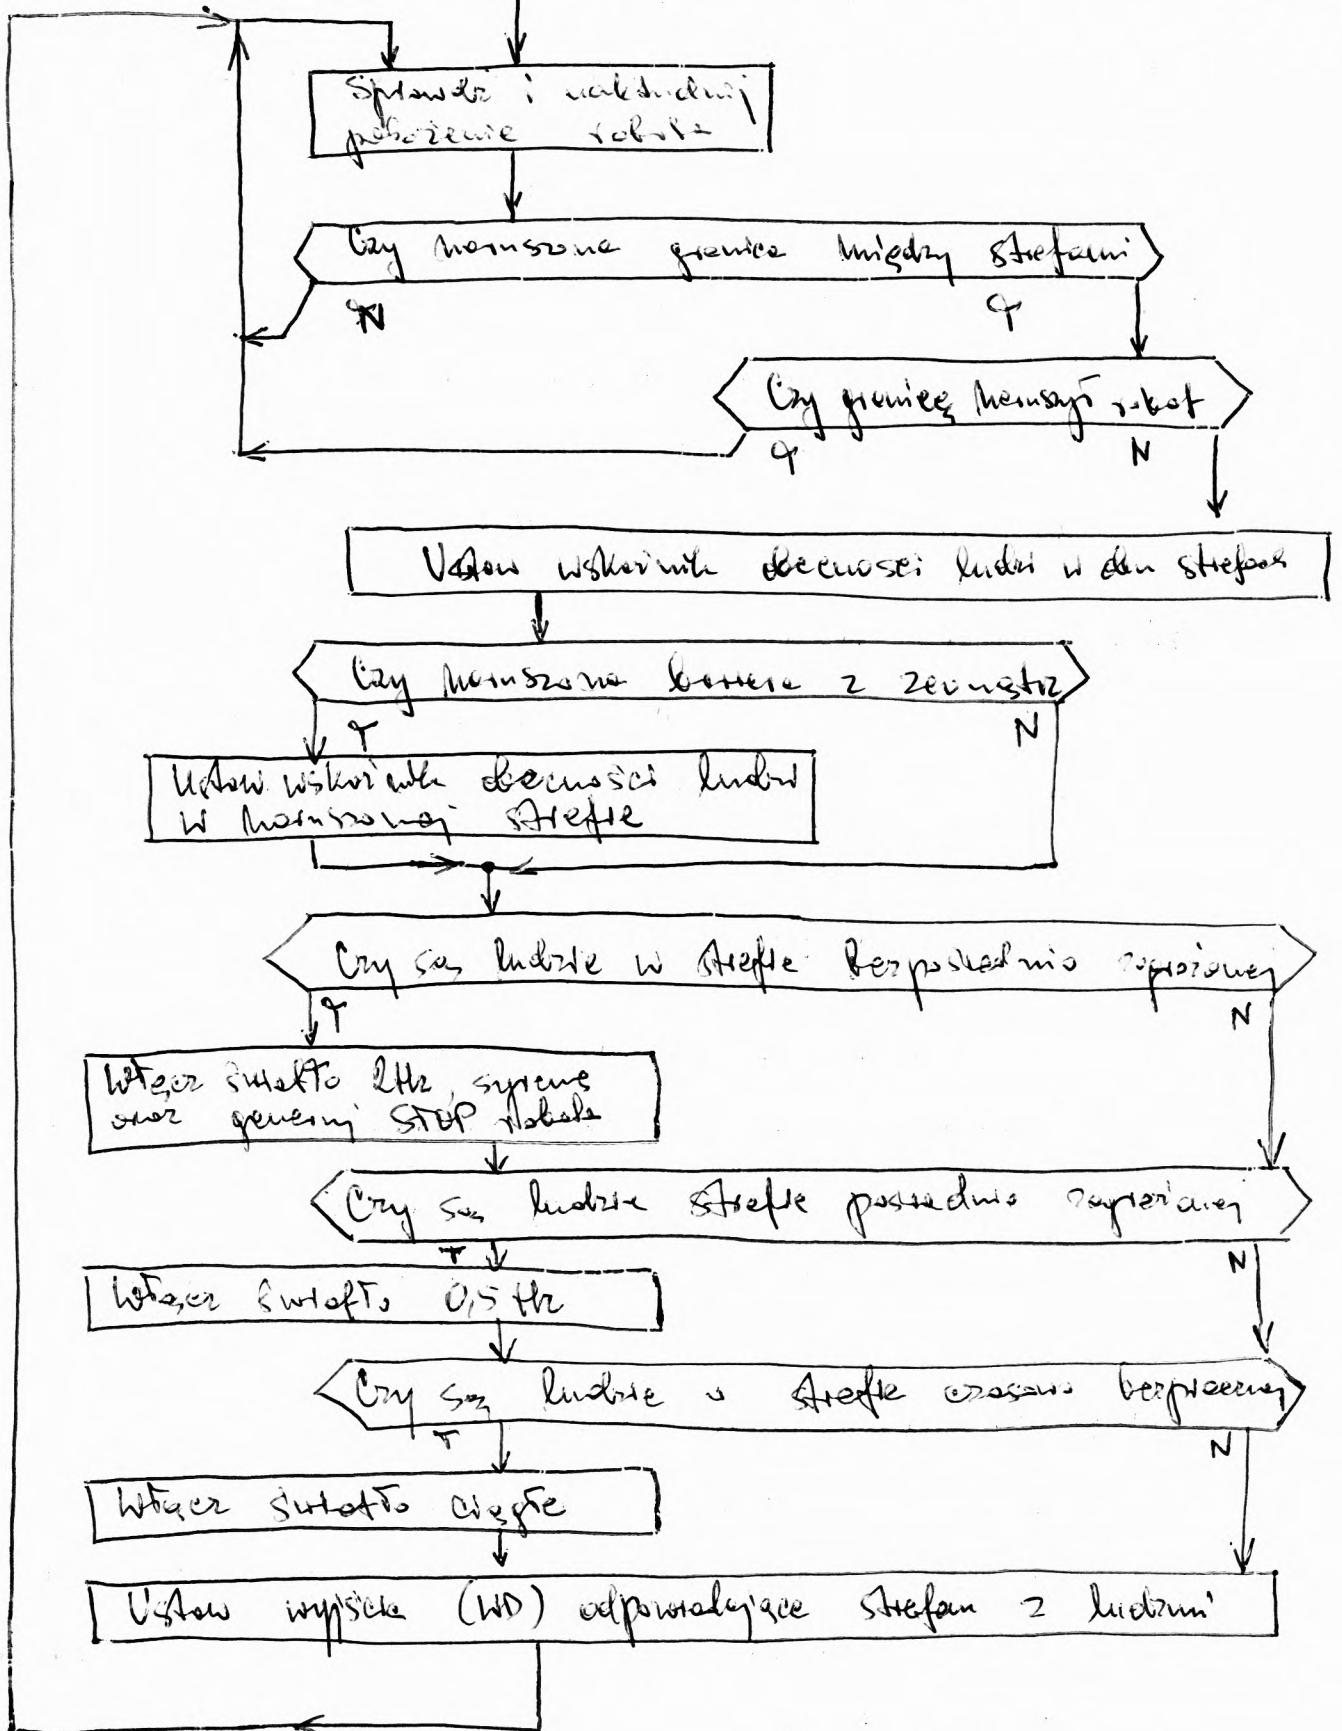 Sprawdź i uaktualnij
położenie robota
Czy naruszona granica między strefami
N T
Czy granicę naruszył robot
T N
Ustaw wskaźnik obecności ludzi w obu strefach
Czy naruszona bariera z zewnątrz
T N
Ustaw wskaźnik obecności ludzi
w naruszonej strefie
Czy są ludzie w strefie bezpośrednio zagrożonej
T N
Włącz światło 2Hz, syrenę
oraz generuj STOP robota
Czy są ludzie strefie pośrednio zagrożonej
T N
Włącz światło 0,5 Hz
Czy są ludzie w strefie czasowo bezpiecznej
T N
Włącz światło ciągłe
Ustaw wyjścia (WD) odpowiadające strefom z ludźmi